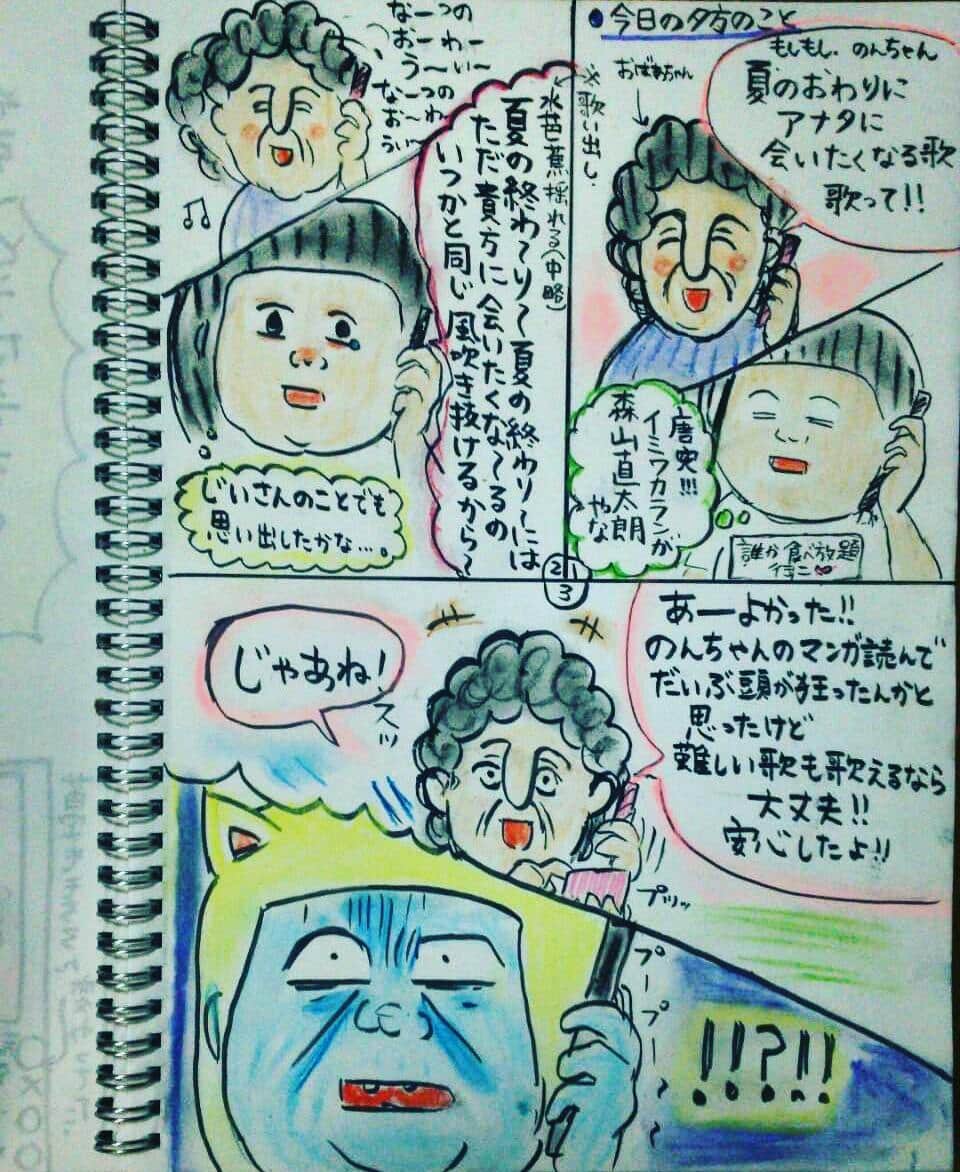 ●今日の夕方のこと
もしもし、のんちゃん
夏のおわりに
アナタに
会いたくなる歌
歌って!!
おばあちゃん
唐突!!!
イミワカランが
森山直太朗
やな
誰か食べ放題
行こ♡
※歌い出し、
水芭蕉揺れる(中略)
夏の終わ〜り〜夏の終わり〜には
ただ貴方に会いたくな〜るの
いつかと同じ風吹き抜けるから〜
なーつの
おーわー
うーいー
なーつの
おーわ
うぃ〜
じいさんのことでも
思い出したかな…。
1
2
3
あーよかった!!
のんちゃんのマンガ読んで
だいぶ頭が狂ったんかと
思ったけど
難しい歌も歌えるなら
大丈夫!!
安心したよ!!
じゃあね!
スッ
プツッ
プープー
!!?!!